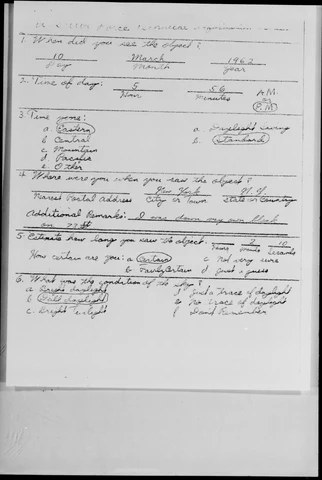 1. When did you see the object?
10 March 1962
Day Month Year
2. Time of day: 5 56 A.M.
Hour Minutes or
P.M.
3. Time zone:
a. Eastern a. Daylight Saving
b. Central b. Standard
c. Mountain
d. Pacific
e. Other
4. Where were you when you saw the object?
New York N.Y.
Nearest Postal Address City or Town State or Country
Additional Remarks: I was down my own block
on 77 St
5. Estimate how long you saw the object: 2 10
Hours Minutes Seconds
How certain are you: a Certain c Not very sure
b Fairly Certain d Just a guess
6. What was the condition of the sky?
a Bright daylight d Just a trace of daylight
b Dull daylight e No trace of daylight
c. Bright Twilight f Don't Remember